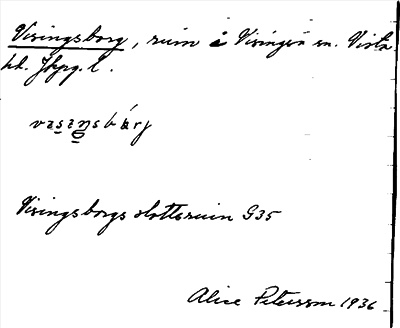 Visingsborg, ruin å Visingsö sn. Vista
hd. Jkpg. l.
Visingsborgs slottsruin G35
Alice Petersson 1936